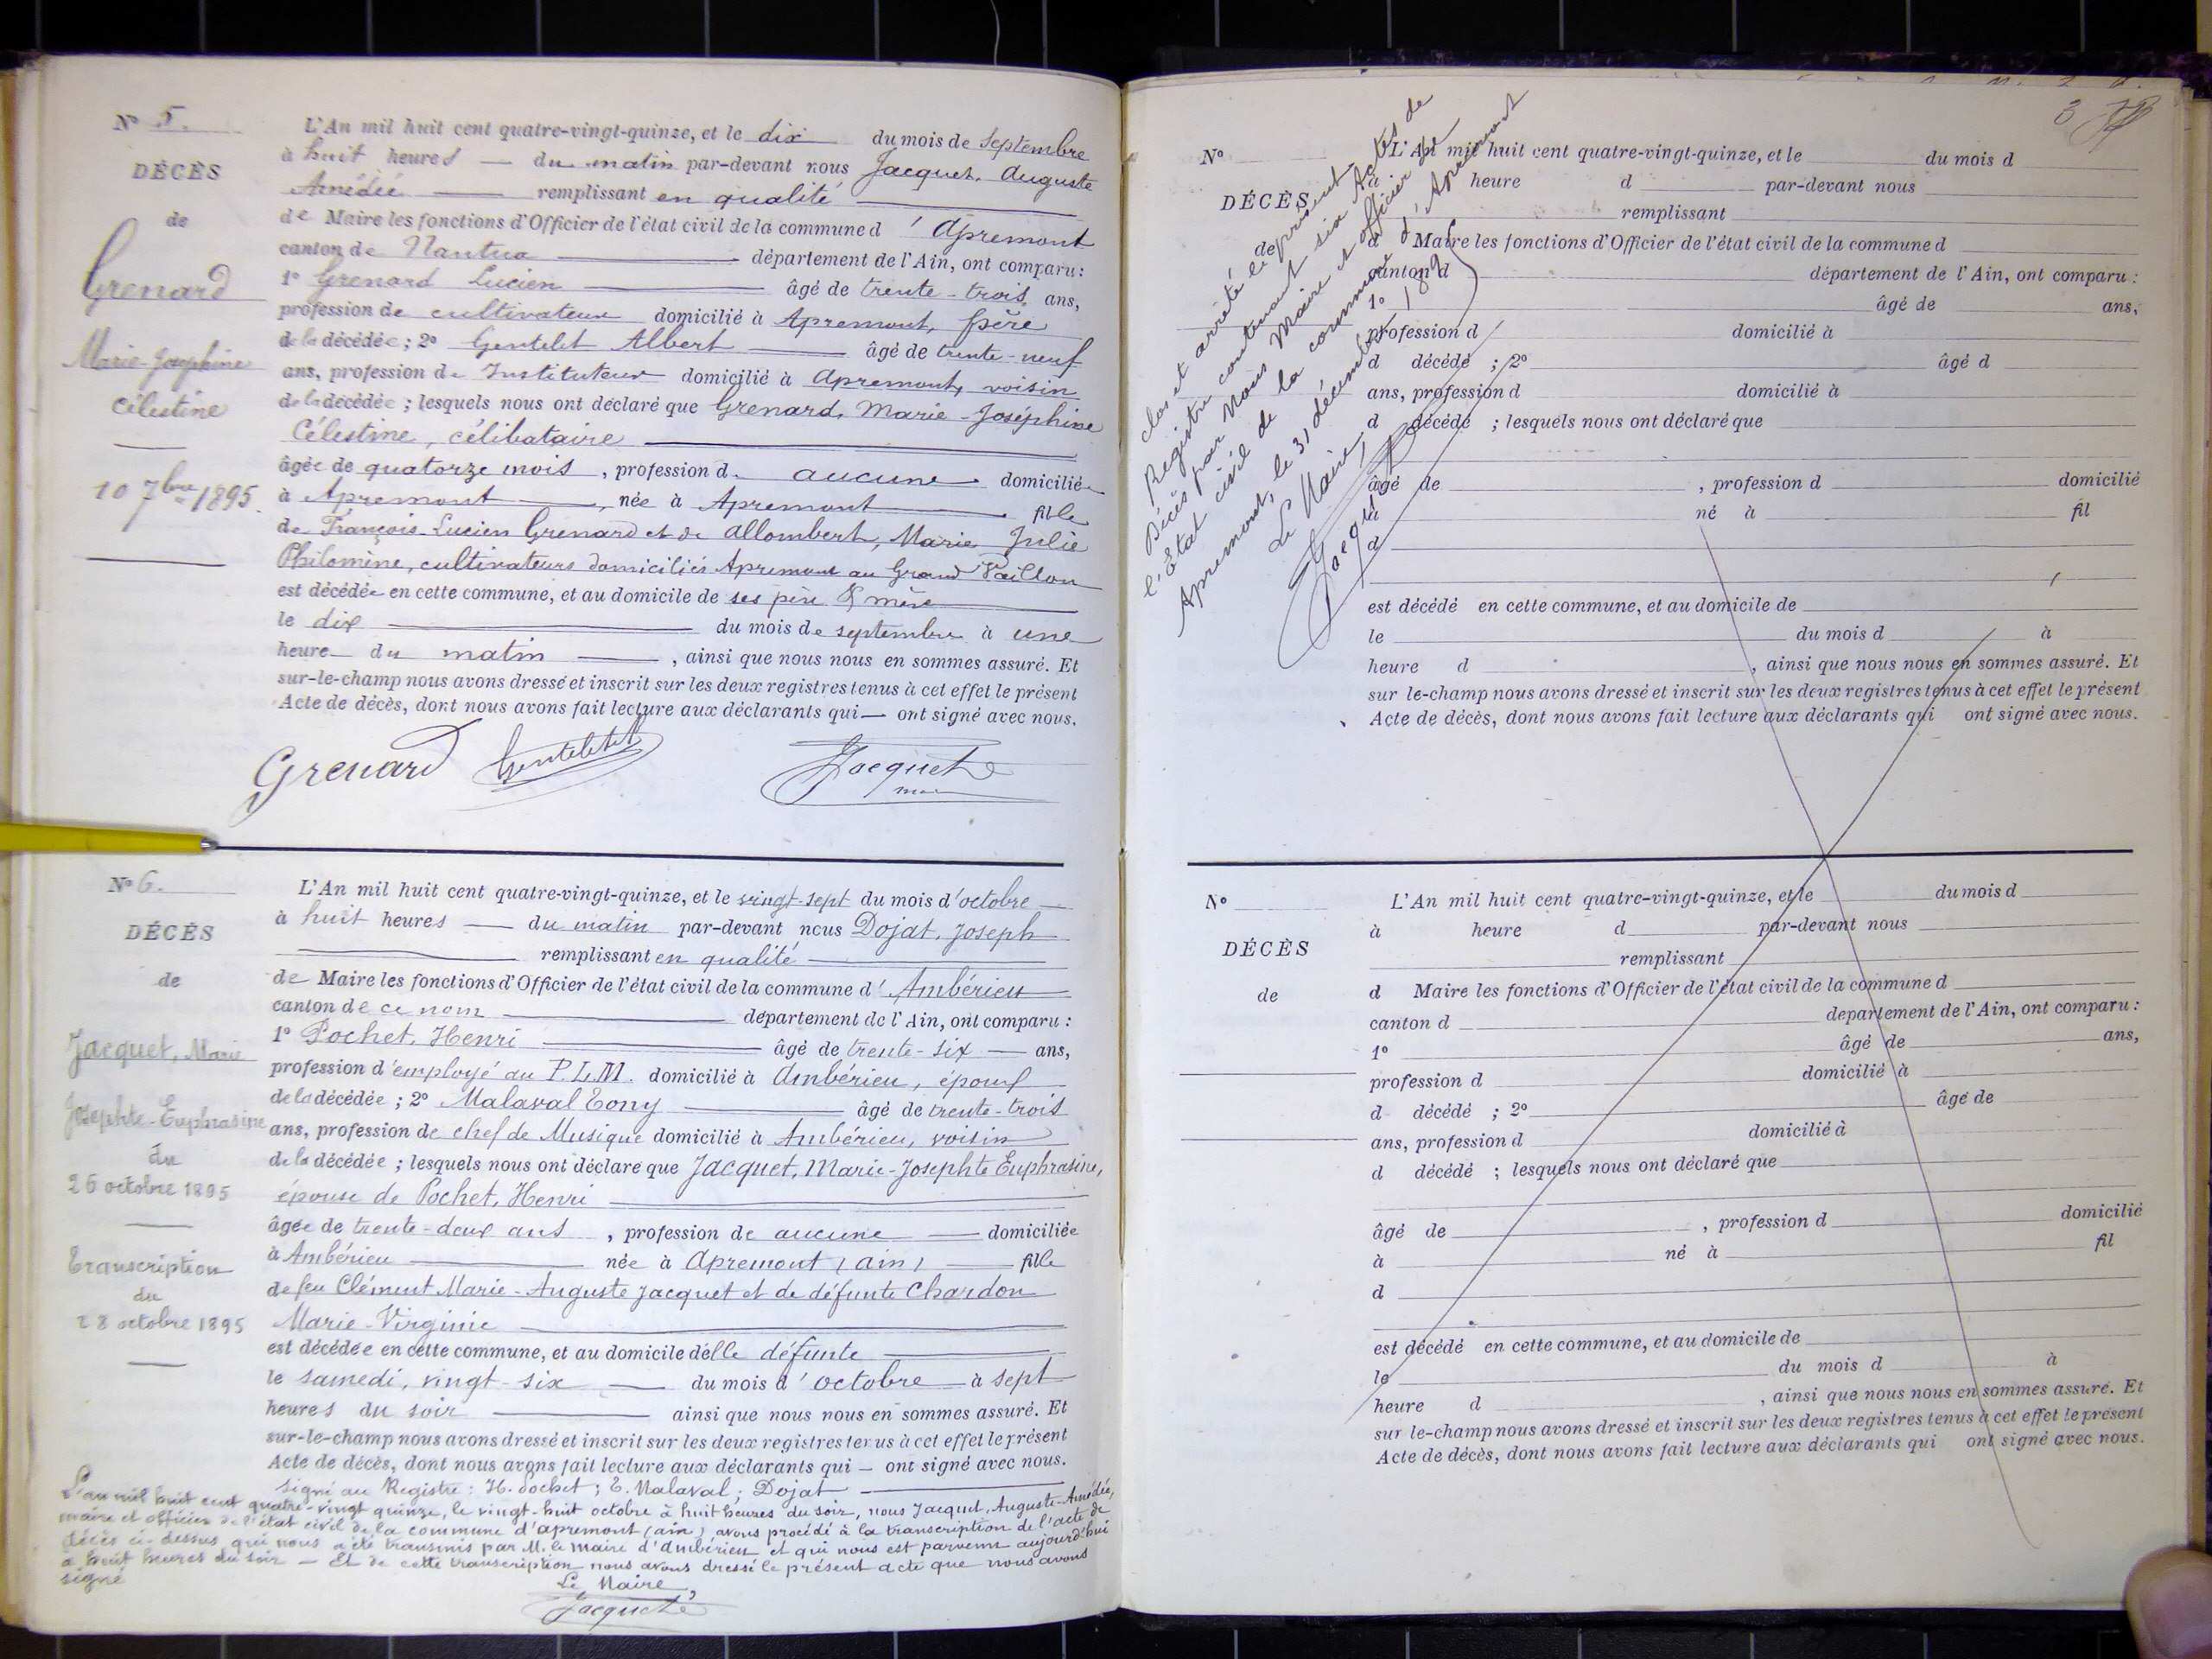 N° 5.
DÉCÈS
de
Grenard
Marie-Josephine
Célestine
10 7bre 1895.
L'An mil huit cent quatre-vingt-quinze, et le dix du mois de Septembre
à huit heures — du matin par-devant nous Jacquet, Auguste
Amédée — remplissant en qualité
de Maire les fonctions d'Officier de l'état civil de la commune d'Apremont
canton de Nantua — département de l'Ain, ont comparu :
1° Grenard Lucien — âgé de trente-trois ans,
profession de cultivateur domicilié à Apremont, père
de la décédée ; 2° Gentelet Albert — âgé de trente-neuf
ans, profession de Instituteur domicilié à Apremont, voisin
de la décédée ; lesquels nous ont déclaré que Grenard, Marie-Joséphine
Célestine, célibataire
âgée de quatorze mois, profession d. aucune domiciliée
à Apremont —, née à Apremont — fille
de François-Lucien Grenard et de Allombert, Marie Julie
Philomène, cultivateurs domiciliés Apremont au Grand Vaillon
est décédée en cette commune, et au domicile de ses père & mère
le dix — du mois de septembre à une
heure — du matin —, ainsi que nous nous en sommes assuré. Et
sur-le-champ nous avons dressé et inscrit sur les deux registres tenus à cet effet le présent
Acte de décès, dont nous avons fait lecture aux déclarants qui — ont signé avec nous.
Grenard Gentelet Jacquet
N° 6.
DÉCÈS
de
Jacquet, Marie
Josephte-Euphrasine
du
26 octobre 1895
Transcription
du
28 octobre 1895
L'An mil huit cent quatre-vingt-quinze, et le vingt-sept du mois d'octobre
à huit heures — du matin par-devant nous Dojat, Joseph
— remplissant en qualité
de Maire les fonctions d'Officier de l'état civil de la commune d'Ambérieu
canton de ce nom — département de l'Ain, ont comparu :
1° Pochet, Henri — âgé de trente-six — ans,
profession d'employé au P.L.M. domicilié à Ambérieu, époux
de la décédée ; 2° Malaval Tony — âgé de trente-trois
ans, profession de chef de Musique domicilié à Ambérieu, voisin
de la décédée ; lesquels nous ont déclaré que Jacquet, Marie-Josephte Euphrasine,
épouse de Pochet, Henri
âgée de trente-deux ans, profession de aucune — domiciliée
à Ambérieu — née à Apremont (ain) — fille
de feu Clément Marie-Auguste Jacquet et de défunte Chardon
Marie-Virginie
est décédée en cette commune, et au domicile d'elle défunte
le samedi, vingt-six — du mois d'octobre à sept
heures du soir — ainsi que nous nous en sommes assuré. Et
sur-le-champ nous avons dressé et inscrit sur les deux registres tenus à cet effet le présent
Acte de décès, dont nous avons fait lecture aux déclarants qui — ont signé avec nous.
Signé au Registre : H. Pochet ; E. Malaval ; Dojat
L'an mil huit cent quatre-vingt quinze, le vingt-huit octobre à huit heures du soir, nous Jacquet, Auguste-Amédée,
maire et officier de l'état civil de la commune d'apremont (ain) avons procédé à la transcription de l'acte de
décès ci-dessus qui nous a été transmis par M. le maire d'ambérieu et qui nous est parvenu aujourd'hui
à huit heures du soir — Et de cette transcription nous avons dressé le présent acte que nous avons
signé
Le Maire,
Jacquet
3
clos et arrêté le présent
Registre contenant six Actes de
Décès par Nous Maire et officier de
l'Etat civil de la commune d'Apremont
Apremont, le 31 décembre 1895
Le Maire,
Jacquet
N°
DÉCÈS
de
L'An mil huit cent quatre-vingt-quinze, et le du mois d
à heure d par-devant nous
remplissant
d Maire les fonctions d'Officier de l'état civil de la commune d
canton d département de l'Ain, ont comparu :
1° âgé de ans,
profession d domicilié à
d décédé ; 2° âgé d
ans, profession d domicilié à
d décédé ; lesquels nous ont déclaré que
âgé de , profession d domicilié
à né à fil
d
est décédé en cette commune, et au domicile de
le du mois d à
heure d , ainsi que nous nous en sommes assuré. Et
sur le-champ nous avons dressé et inscrit sur les deux registres tenus à cet effet le présent
Acte de décès, dont nous avons fait lecture aux déclarants qui ont signé avec nous.
N°
DÉCÈS
de
L'An mil huit cent quatre-vingt-quinze, et le du mois d
à heure d par-devant nous
remplissant
d Maire les fonctions d'Officier de l'état civil de la commune d
canton d département de l'Ain, ont comparu :
1° âgé de ans,
profession d domicilié à
d décédé ; 2° âgé de
ans, profession d domicilié à
d décédé ; lesquels nous ont déclaré que
âgé de , profession d domicilié
à né à fil
d
est décédé en cette commune, et au domicile de
le du mois d à
heure d , ainsi que nous nous en sommes assuré. Et
sur le-champ nous avons dressé et inscrit sur les deux registres tenus à cet effet le présent
Acte de décès, dont nous avons fait lecture aux déclarants qui ont signé avec nous.